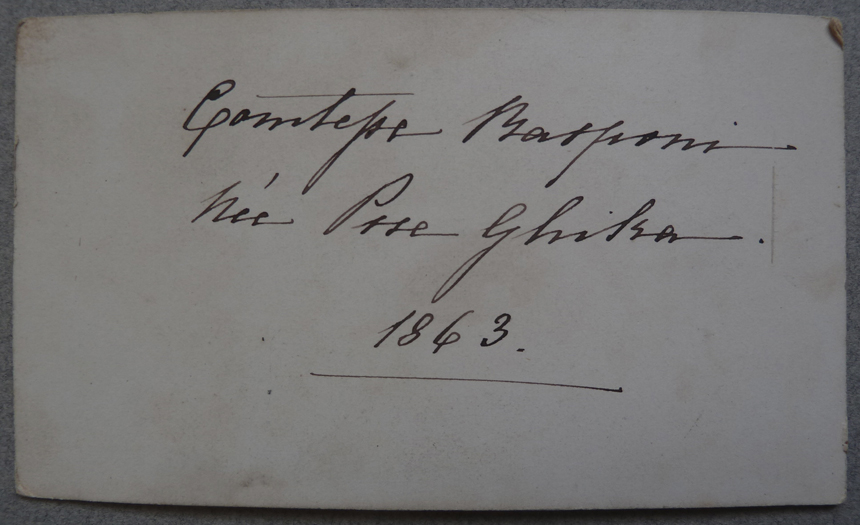 Comtesse Rasponi
Née Psse Ghika.
1863.